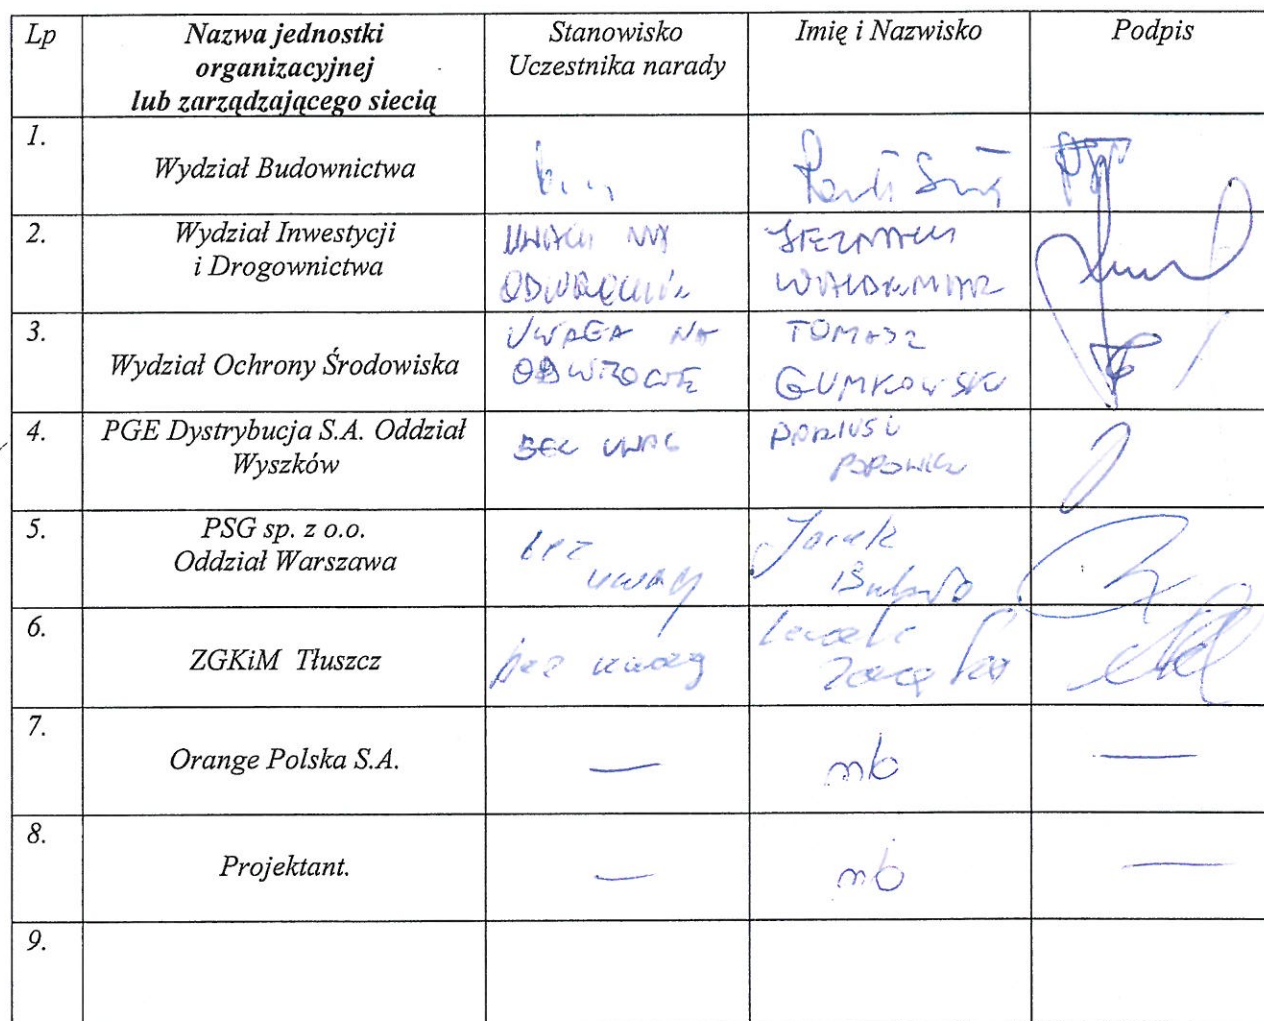 Lp
Nazwa jednostki
organizacyjnej
lub zarządzającego siecią
Stanowisko
Uczestnika narady
Imię i Nazwisko
Podpis
1.
Wydział Budownictwa
2.
Wydział Inwestycji
i Drogownictwa
UWAGI NA
ODWROCIE
WALDEMAR
3.
Wydział Ochrony Środowiska
UWAGA NA
ODWROCIE
TOMASZ
GUMKOWSKI
4.
PGE Dystrybucja S.A. Oddział
Wyszków
BEZ UWAG
DARIUSZ
5.
PSG sp. z o.o.
Oddział Warszawa
bez
uwag
Jacek
6.
ZGKiM Tłuszcz
bez uwag
7.
Orange Polska S.A.
—
nb
—
8.
Projektant.
—
nb
—
9.